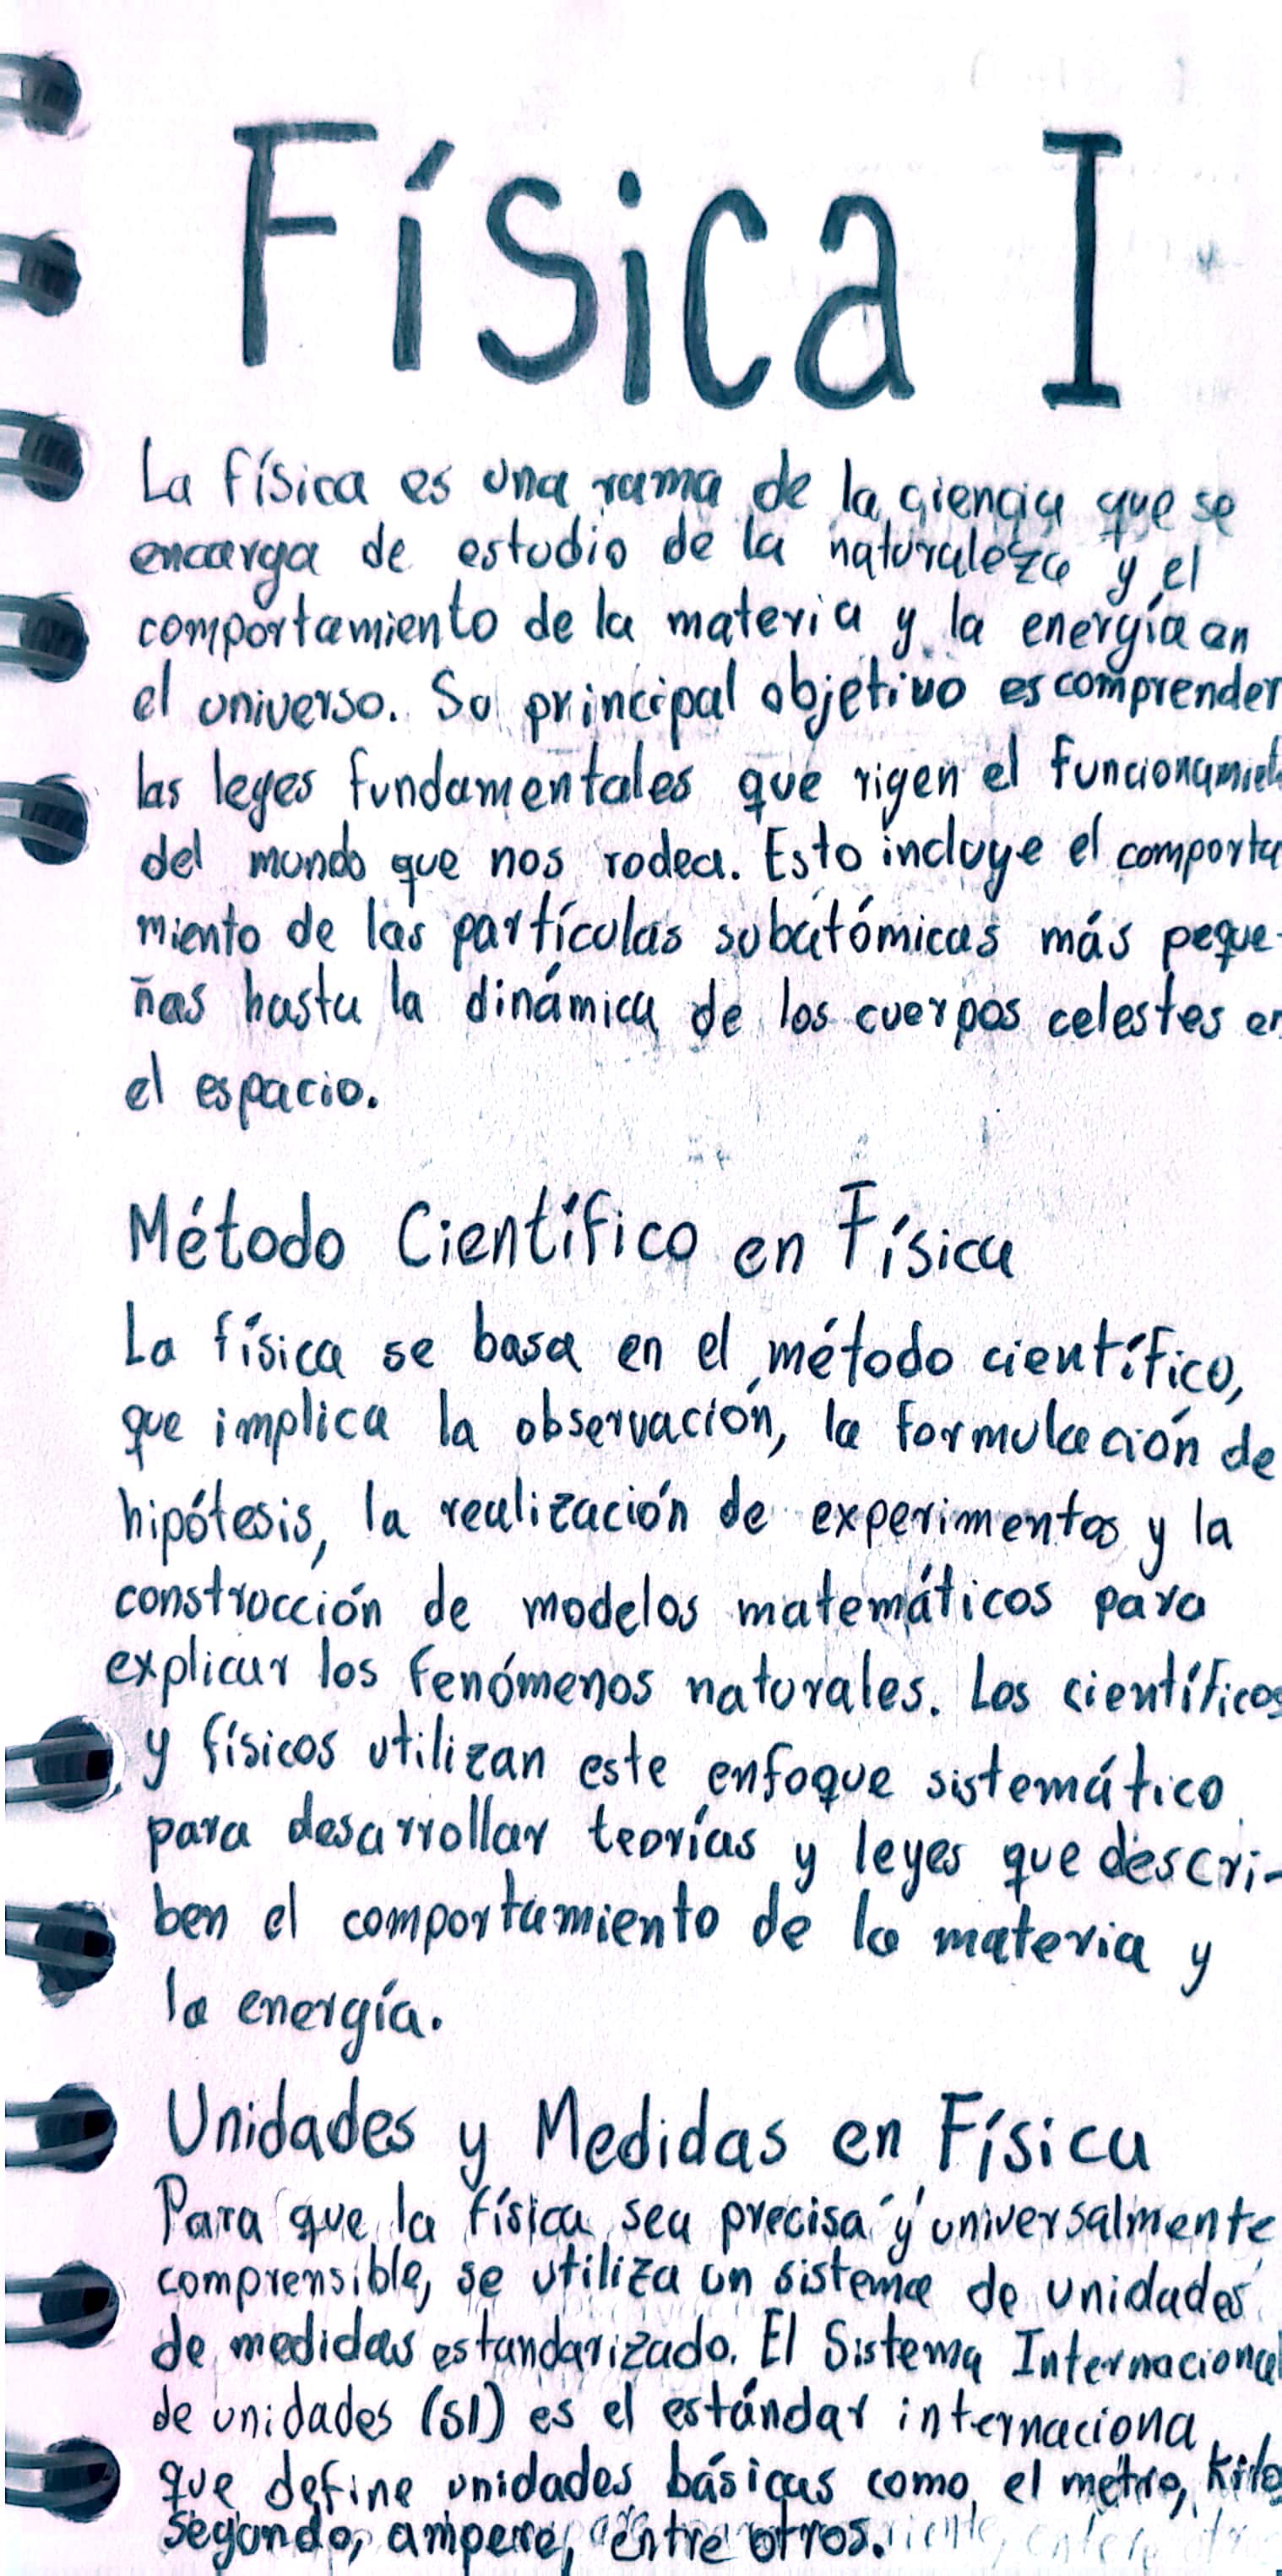 Física I
La física es una rama de la ciencia que se
encarga de estudio de la naturaleza y el
comportamiento de la materia y la energía en
el universo. Su principal objetivo es comprender
las leyes fundamentales que rigen el funcionamient
del mundo que nos rodea. Esto incluye el comporta
miento de las partículas subatómicas más peque-
ñas hasta la dinámica de los cuerpos celestes en
el espacio.
Método Científico en Física
La física se basa en el método científico,
que implica la observación, la formulación de
hipótesis, la realización de experimentos y la
construcción de modelos matemáticos para
explicar los fenómenos naturales. Los científicos
y físicos utilizan este enfoque sistemático
para desarrollar teorías y leyes que descri-
ben el comportamiento de la materia y
la energía.
Unidades y Medidas en Física
Para que la física sea precisa y universalmente
comprensible, se utiliza un sistema de unidades
de medidas estandarizado. El Sistema Internacional
de unidades (SI) es el estándar internaciona
que define unidades básicas como el metro, kilo
segundo, ampere, entre otros.